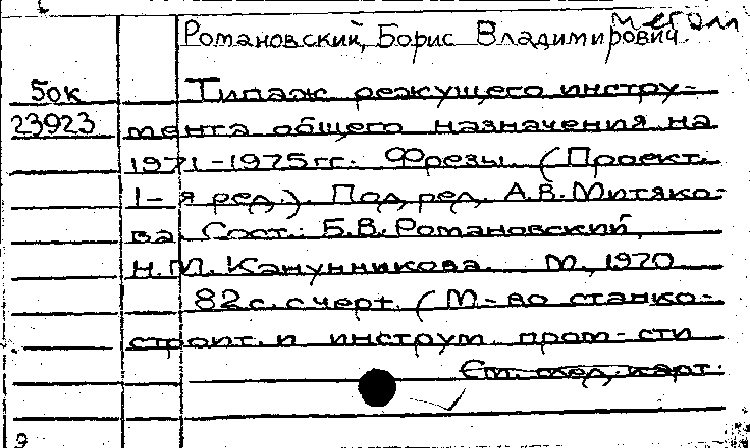 Металл
Романовский, Борис Владимирович.
Бок Типаж режущего инстру-
23923 мента общего назначения на
1971-1975гг. Фрезы. (Проект.
1-я ред.). Под ред. А.В. Митяко-
ва Сост.: Б.В. Романовский,
Н.М. Канунникова. М., 1970
82с. с черт. (М-во станко-
строит. и инструм. пром-сти
См. след. карт.